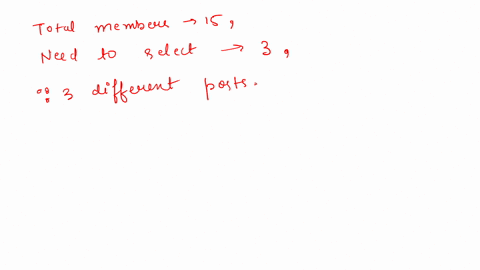 Total members → 15,
Need to select → 3,
∵ 3 different posts.